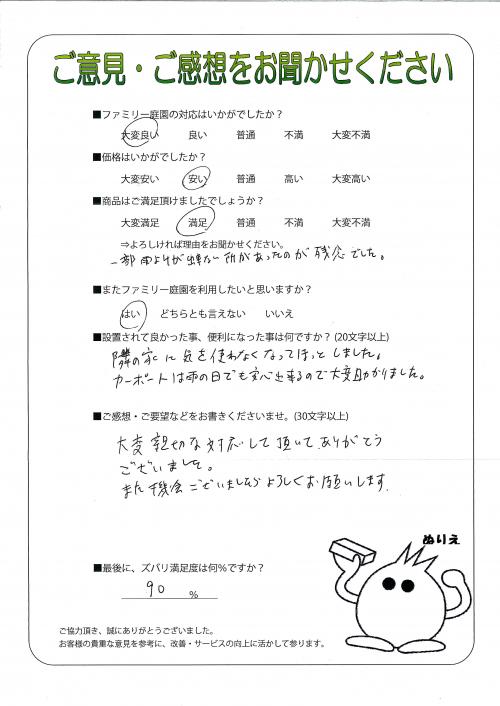 ご意見・ご感想をお聞かせください
■ファミリー庭園の対応はいかがでしたか？
大変良い 良い 普通 不満 大変不満
■価格はいかがでしたか？
大変安い 安い 普通 高い 大変高い
■商品はご満足頂けましたでしょうか？
大変満足 満足 普通 不満 大変不満
⇒よろしければ理由をお聞かせください。
一部 が出来ない所があったのが残念でした。
■またファミリー庭園を利用したいと思いますか？
はい どちらとも言えない いいえ
■設置されて良かった事、便利になった事は何ですか？(20文字以上)
隣の家に気を使わなくなってほっとしました。
カーポートは雨の日でも 出来るので大変助かりました。
■ご感想・ご要望などをお書きくださいませ。(30文字以上)
大変親切な対応して頂いて、ありがとう
ございました。
また機会ございましたらよろしくお願いします。
ぬりえ
■最後に、ズバリ満足度は何％ですか？
90 ％
ご協力頂き、誠にありがとうございました。
お客様の貴重な意見を参考に、改善・サービスの向上に活かして参ります。